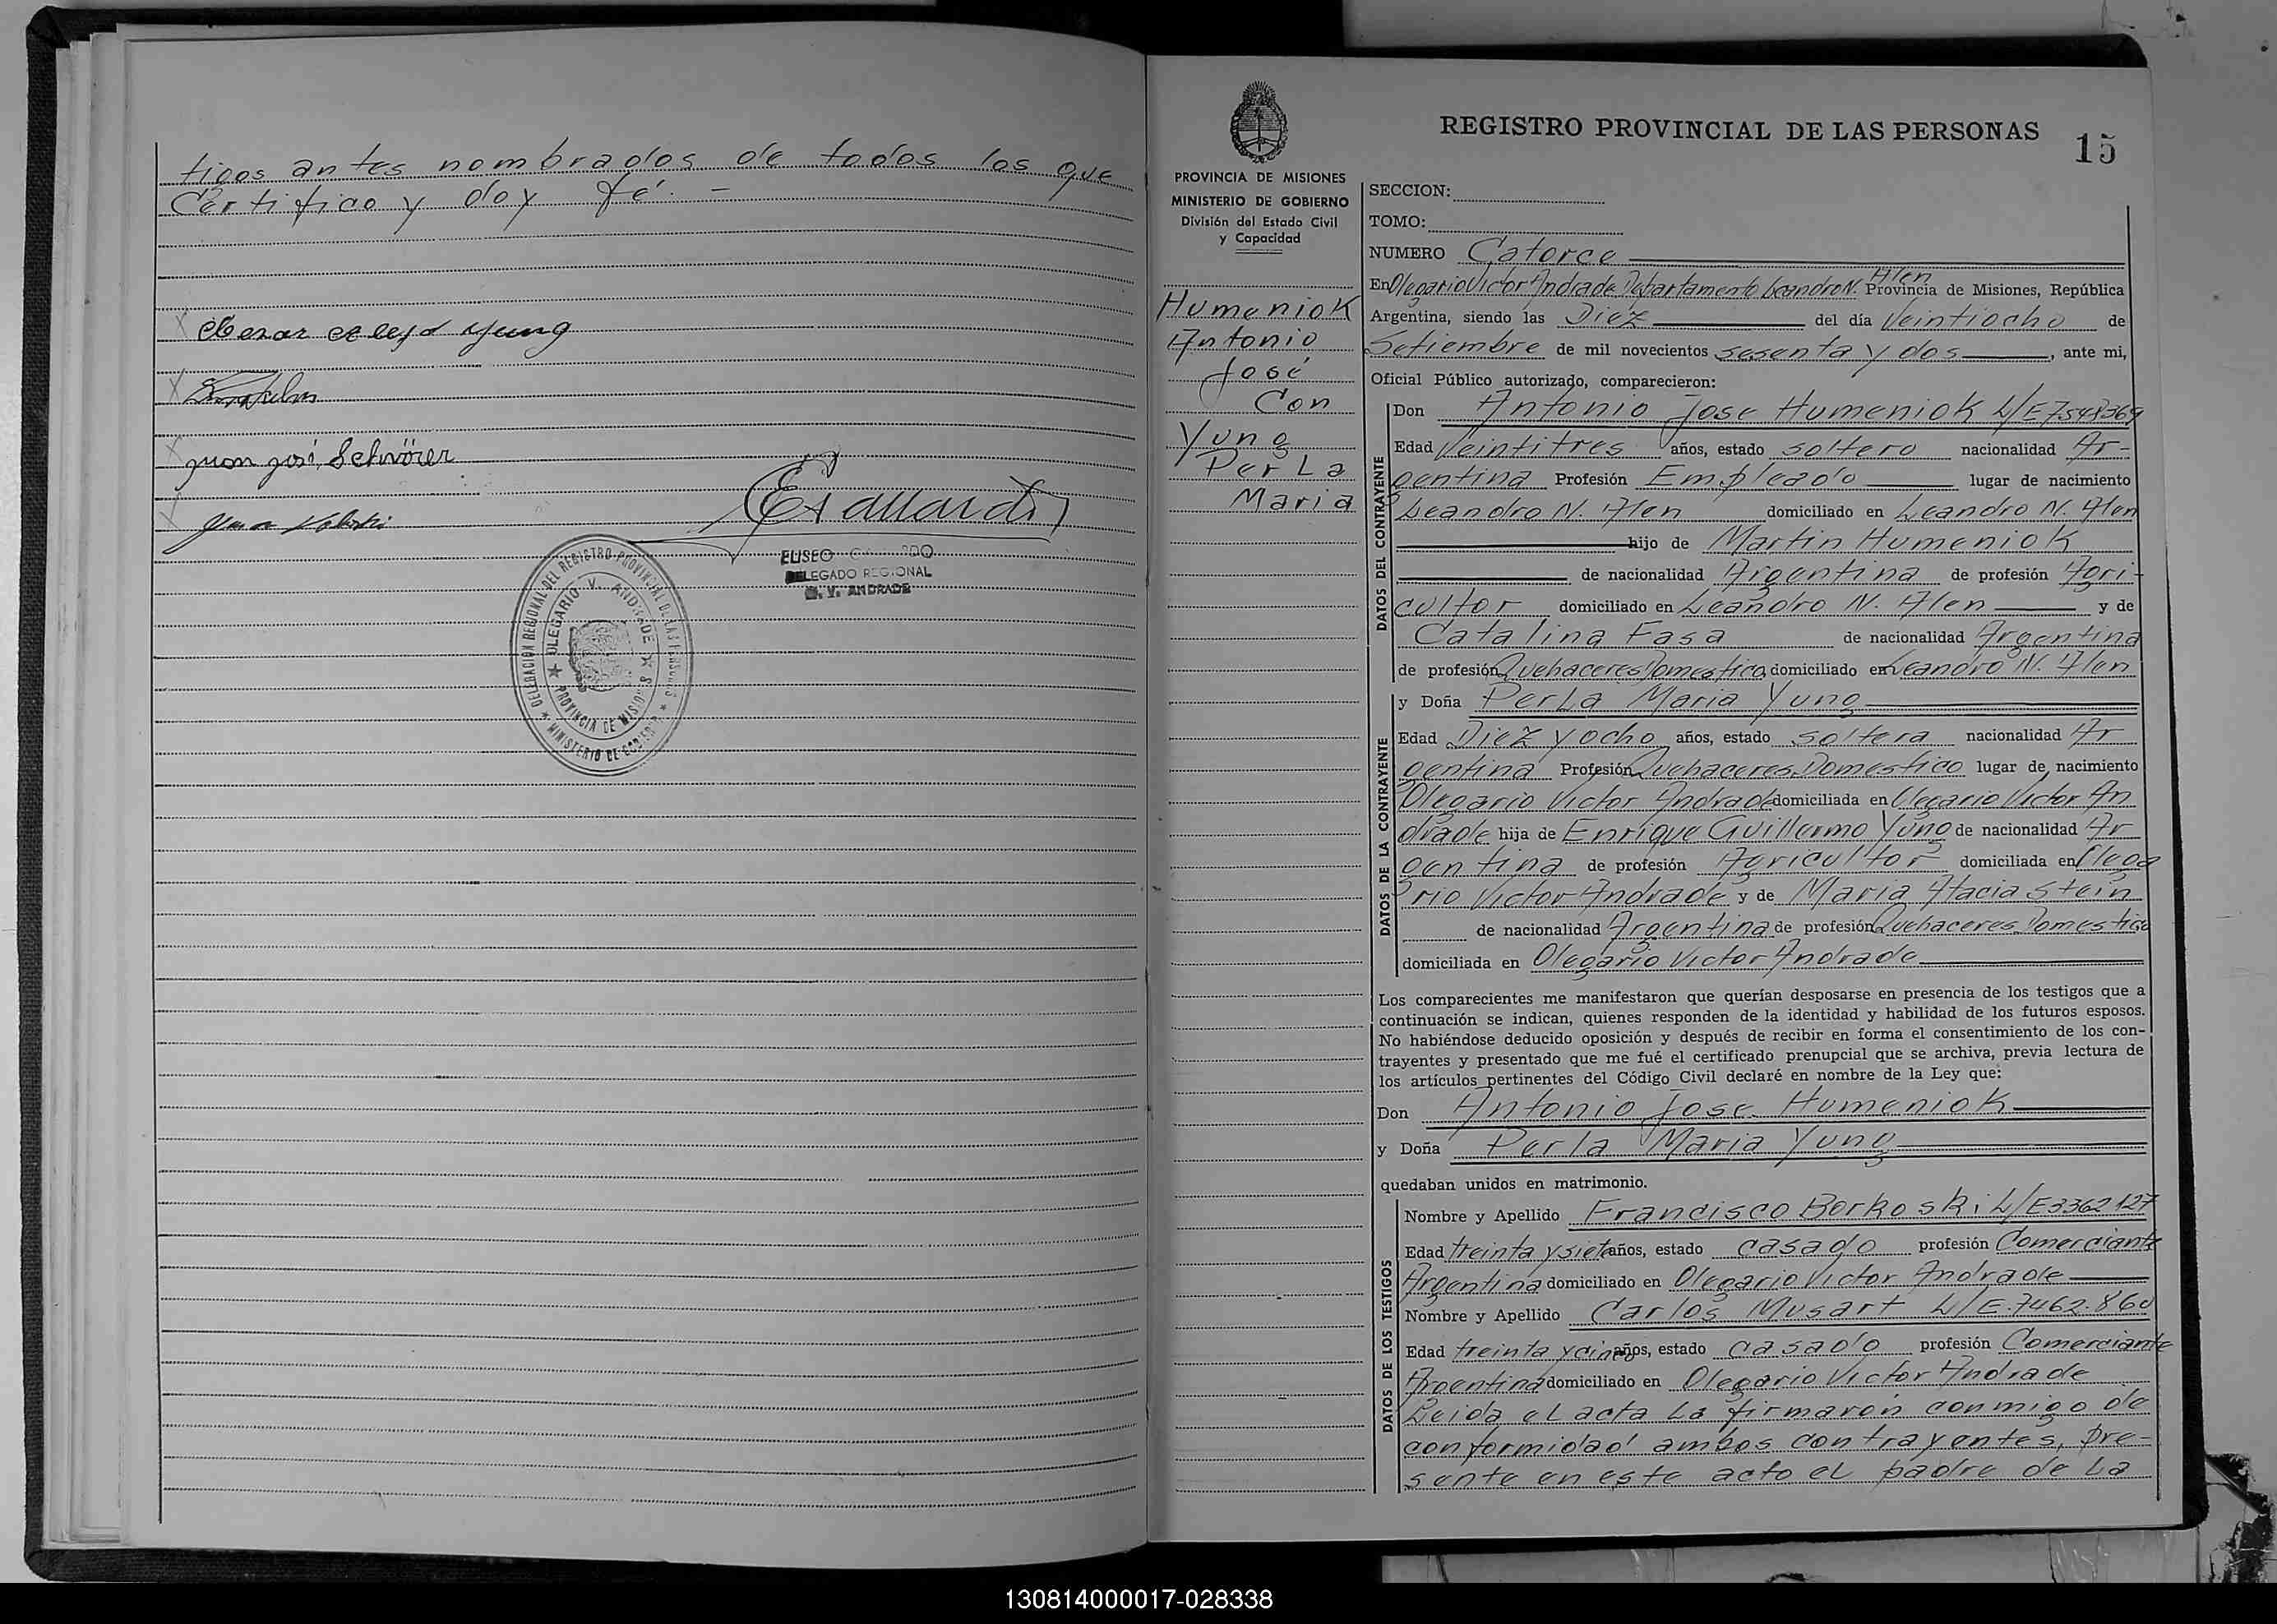 tigos antes nombrados de todos los que
Certifico y doy fé. -
Juan José Schvörer
ELISEO
DELEGADO REGIONAL
O. V. ANDRADE
DELEGACION REGIONAL DEL REGISTRO PROVINCIAL DE LAS PERSONAS
OLEGARIO V. ANDRADE
PROVINCIA DE MISIONES
MINISTERIO DE GOBIERNO
PROVINCIA DE MISIONES
MINISTERIO DE GOBIERNO
División del Estado Civil
y Capacidad
Humeniok
Antonio
José
Con
Yung
Perla
Maria
REGISTRO PROVINCIAL DE LAS PERSONAS
15
SECCION:
TOMO:
NUMERO Catorce
En Olegario Victor Andrade Departamento Leandro N. Alen Provincia de Misiones, República
Argentina, siendo las Diez del día Veintiocho de
Setiembre de mil novecientos sesenta y dos, ante mi,
Oficial Público autorizado, comparecieron:
DATOS DEL CONTRAYENTE
Don Antonio Jose Humeniok L/E 7548369
Edad Veintitres años, estado soltero nacionalidad Ar-
gentina Profesión Empleado lugar de nacimiento
Leandro N. Alen domiciliado en Leandro N. Alen
hijo de Martin Humeniok
de nacionalidad Argentina de profesión Agri-
cultor domiciliado en Leandro N. Alen y de
Catalina Fasa de nacionalidad Argentina
de profesión Quehaceres Domestico domiciliado en Leandro N. Alen
DATOS DE LA CONTRAYENTE
y Doña Perla Maria Yung
Edad Diez y ocho años, estado soltera nacionalidad Ar
gentina Profesión Quehaceres Domestico lugar de nacimiento
Olegario Victor Andrade domiciliada en Olegario Victor An
drade hija de Enrique Guillermo Yung de nacionalidad Ar
gentina de profesión Agricultor domiciliada en Olega
rio Victor Andrade y de Maria Stein
de nacionalidad Argentina de profesión Quehaceres Domestico
domiciliada en Olegario Victor Andrade
Los comparecientes me manifestaron que querían desposarse en presencia de los testigos que a
continuación se indican, quienes responden de la identidad y habilidad de los futuros esposos.
No habiéndose deducido oposición y después de recibir en forma el consentimiento de los con-
trayentes y presentado que me fué el certificado prenupcial que se archiva, previa lectura de
los artículos pertinentes del Código Civil declaré en nombre de la Ley que:
Don Antonio Jose Humeniok
y Doña Perla Maria Yung
quedaban unidos en matrimonio.
DATOS DE LOS TESTIGOS
Nombre y Apellido Francisco Borkoski L/E 3362127
Edad treinta y siete años, estado casado profesión Comerciante
Argentina domiciliado en Olegario Victor Andrade
Nombre y Apellido Carlos Musart L/E. 7462.860
Edad treinta y cinco años, estado casado profesión Comerciante
Argentina domiciliado en Olegario Victor Andrade
Leida el acta la firmaron conmigo de
conformidad ambos contrayentes, pre-
sente en este acto el padre de La
130814000017-028338